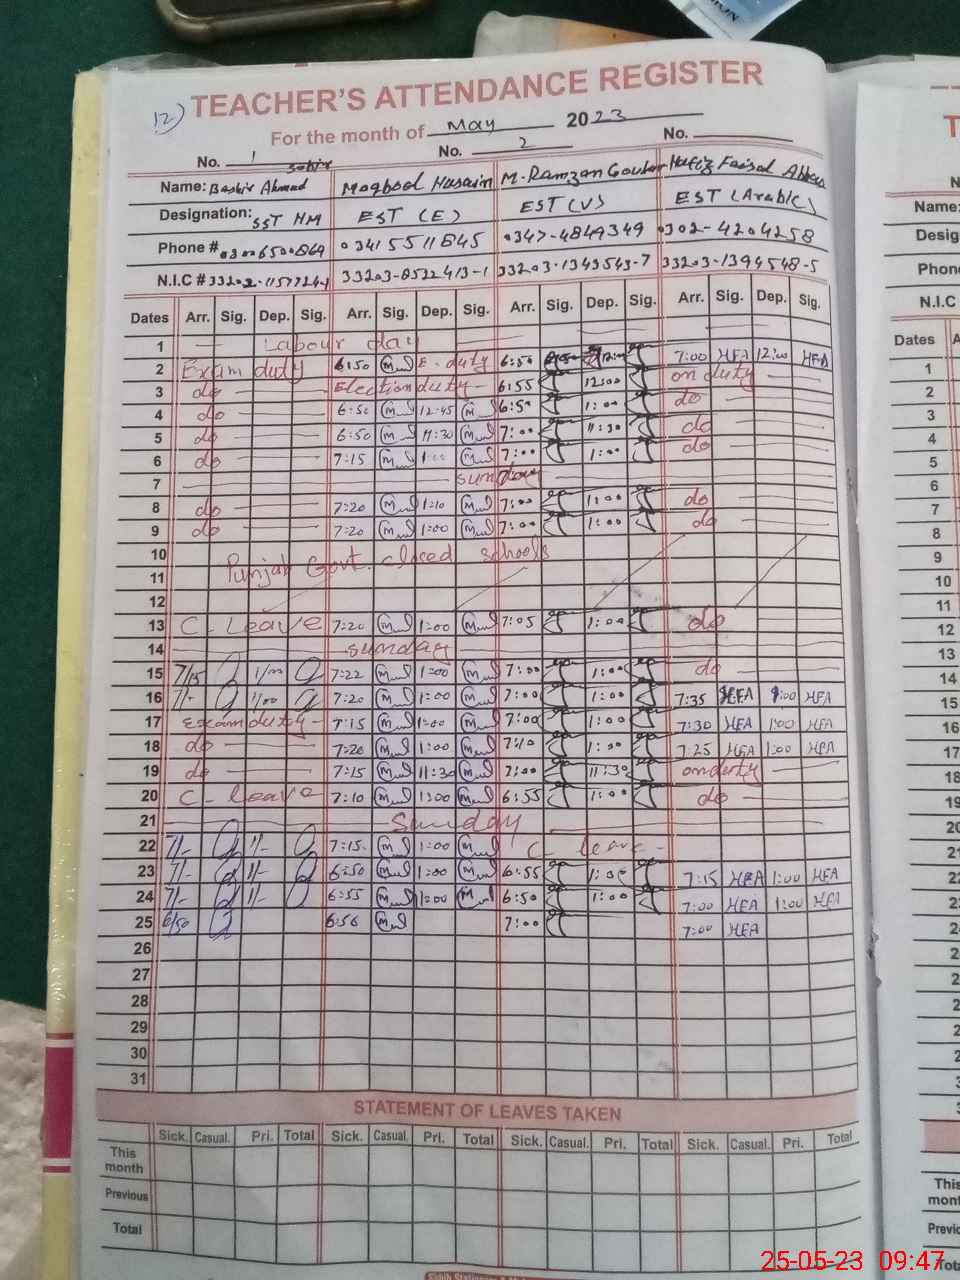 12)
TEACHER'S ATTENDANCE REGISTER
For the month of May 2023
No. 1 No. 2 No.
Sabir
Name: Bashir Ahmad Maqbool Husain M. Ramzan Gouhar Hafiz Faisal Abbas
Designation: SST HM EST (E) EST (V) EST (Arabic)
Phone # 0341 5511845 0347-4849349 0302-4204258
N.I.C # 33203-8522413-1 33203-1343543-7 33203-1394548-5
Dates Arr. Sig. Dep. Sig. Arr. Sig. Dep. Sig. Arr. Sig. Dep. Sig. Arr. Sig. Dep. Sig.
1 Labour day
2 Exam duty 6:50 E. duty 6:50 7:00 HFA 12:00 HFA
3 do Election duty 6:55 12:00 on duty
4 do 6:50 12:45 6:50 1:00 do
5 do 6:50 11:30 7:00 11:30 do
6 do 7:15 1:00 7:00 1:00 do
7 sunday
8 do 7:20 1:10 7:00 1:00 do
9 do 7:20 1:00 7:00 1:00 do
10 Punjab Govt. closed schools
11
12
13 C-Leave 7:20 1:00 7:05 1:00 do
14 sunday
15 7/15 1/00 7:22 1:00 7:00 1:00 do
16 7/- 1/00 7:20 1:00 7:00 1:00 7:35 HFA 1:00 HFA
17 Exam duty 7:15 1:00 7:00 1:00 7:30 HFA 1:00 HFA
18 do 7:20 1:00 7:10 1:00 7:25 HFA 1:00 HFA
19 do 7:15 11:30 7:00 11:30 on duty
20 C-leave 7:10 1:00 6:55 1:00 do
21 Sunday
22 7/- 1/- 7:15 1:00 C leave
23 7/- 1/- 6:50 1:00 6:55 1:00 7:15 HFA 1:00 HFA
24 7/- 1/- 6:55 1:00 6:50 1:00 7:00 HFA 1:00 HFA
25 6/50 6:50 7:00 7:00 HFA
26
27
28
29
30
31
STATEMENT OF LEAVES TAKEN
Sick. Casual. Pri. Total Sick. Casual. Pri. Total Sick. Casual. Pri. Total Sick. Casual. Pri. Total
This month
Previous
Total
T
Name:
Desig
Phon
N.I.C
Dates A
1
2
3
4
5
6
7
8
9
10
11
12
13
14
15
16
17
18
19
20
This
mont
Previo
Tota
25-05-23 09:47